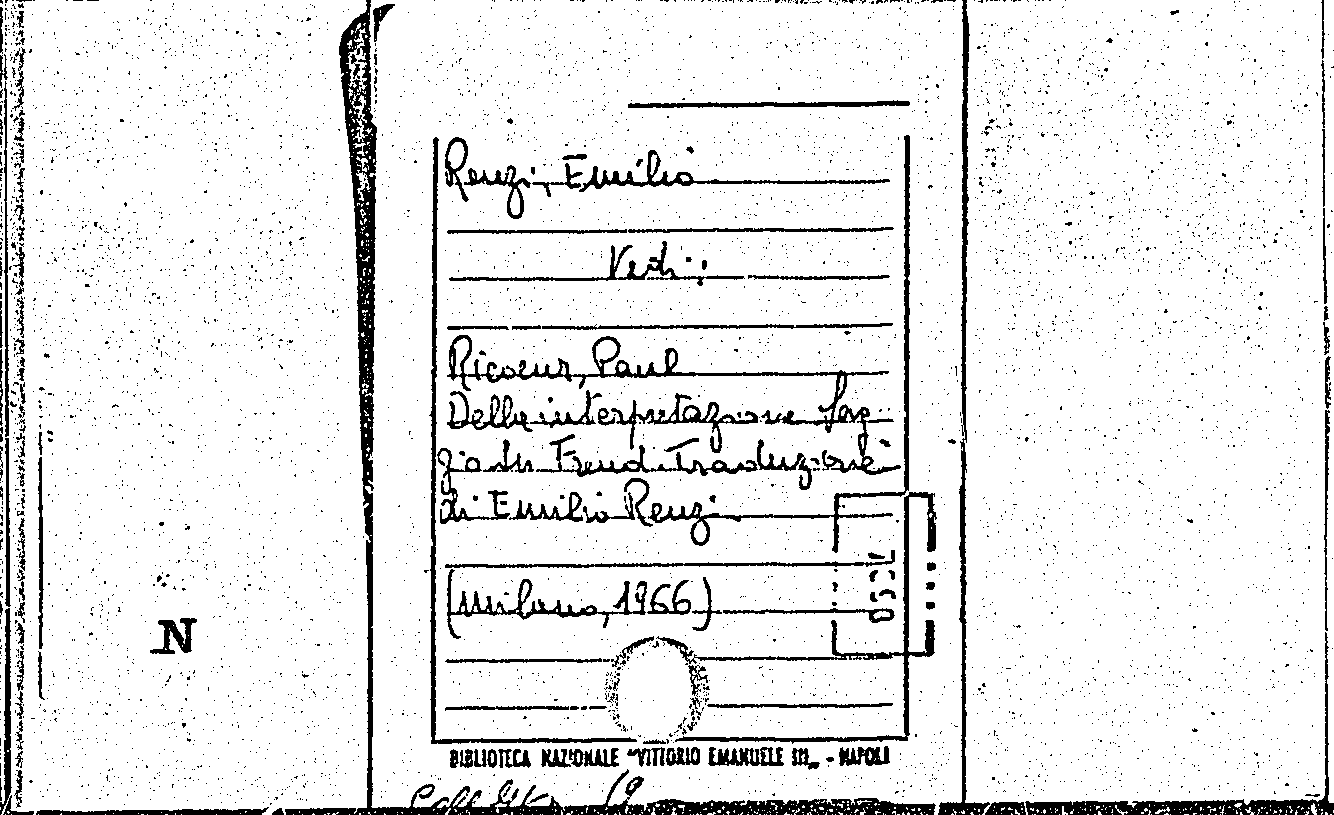 Renzi, Emilio
Vedi:
Ricoeur, Paul
Della interpretazione Sag
gio su Freud. Traduzione
di Emilio Renzi.
(Milano, 1966)
N
BIBLIOTECA NAZIONALE "VITTORIO EMANUELE III„ - NAPOLI